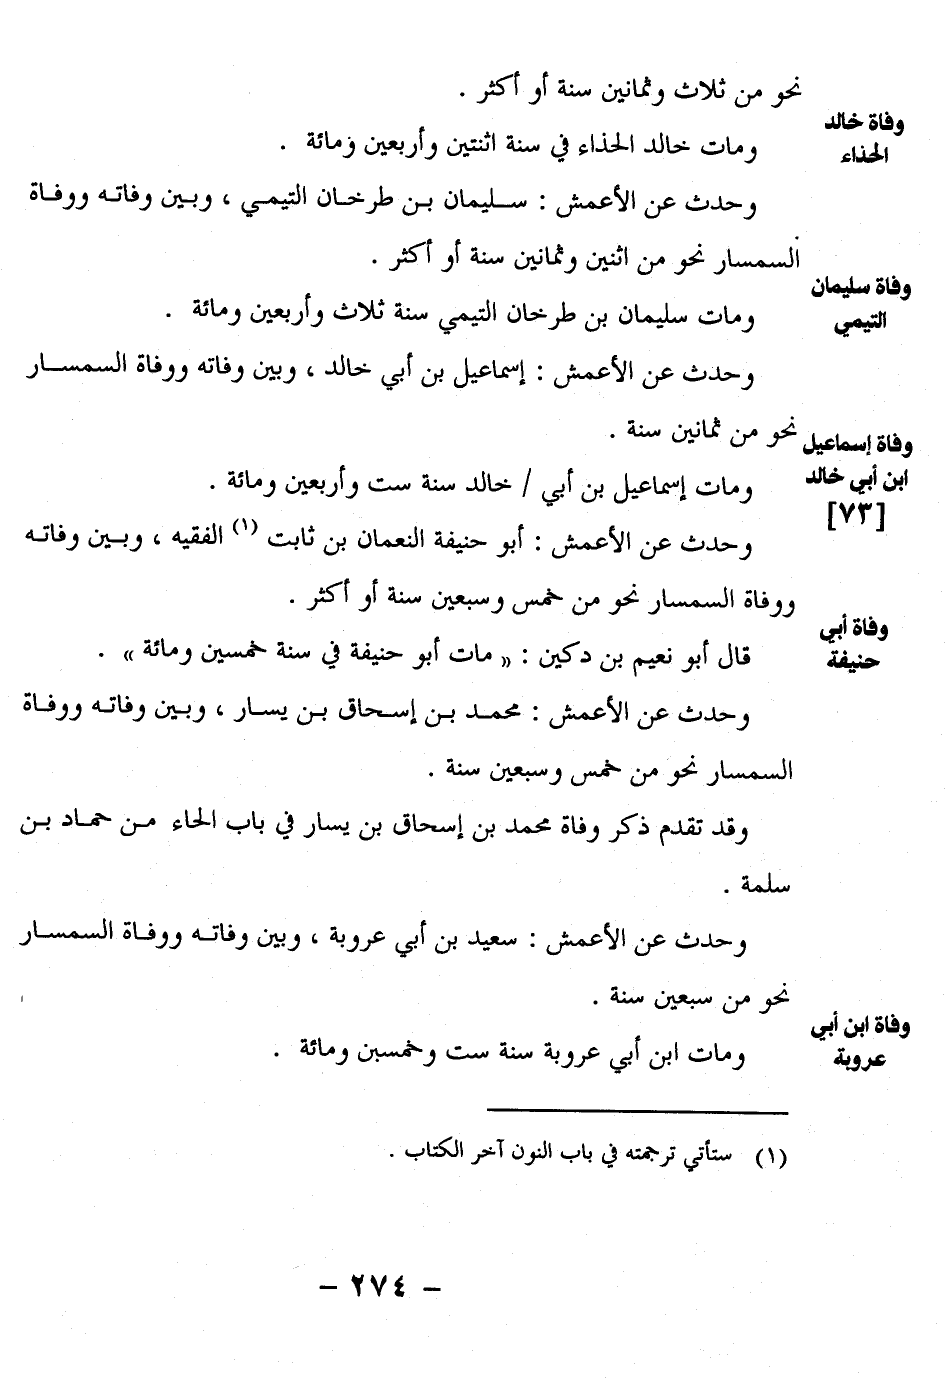 نحو من ثلاث وثمانين سنة أو أكثر .
وفاة خالد
الحذاء
ومات خالد الحذاء في سنة اثنتين وأربعين ومائة .
وحدث عن الأعمش : سليمان بن طرخان التيمي ، وبين وفاته ووفاة
السمسار نحو من اثنين وثمانين سنة أو أكثر .
وفاة سليمان
التيمي
ومات سليمان بن طرخان التيمي سنة ثلاث وأربعين ومائة .
وحدث عن الأعمش : إسماعيل بن أبي خالد ، وبين وفاته ووفاة السمسار
نحو من ثمانين سنة .
وفاة إسماعيل
ابن أبي خالد
[٧٣]
ومات إسماعيل بن أبي / خالد سنة ست وأربعين ومائة .
وحدث عن الأعمش : أبو حنيفة النعمان بن ثابت (١) الفقيه ، وبين وفاته
ووفاة السمسار نحو من خمس وسبعين سنة أو أكثر .
وفاة أبي
حنيفة
قال أبو نعيم بن دكين : « مات أبو حنيفة في سنة خمسين ومائة » .
وحدث عن الأعمش : محمد بن إسحاق بن يسار ، وبين وفاته ووفاة
السمسار نحو من خمس وسبعين سنة .
وقد تقدم ذكر وفاة محمد بن إسحاق بن يسار في باب الحاء من حماد بن
سلمة .
وحدث عن الأعمش : سعيد بن أبي عروبة ، وبين وفاته ووفاة السمسار
نحو من سبعين سنة .
وفاة ابن أبي
عروبة
ومات ابن أبي عروبة سنة ست وخمسين ومائة .
(١) ستأتي ترجمته في باب النون آخر الكتاب .
- ٢٧٤ -